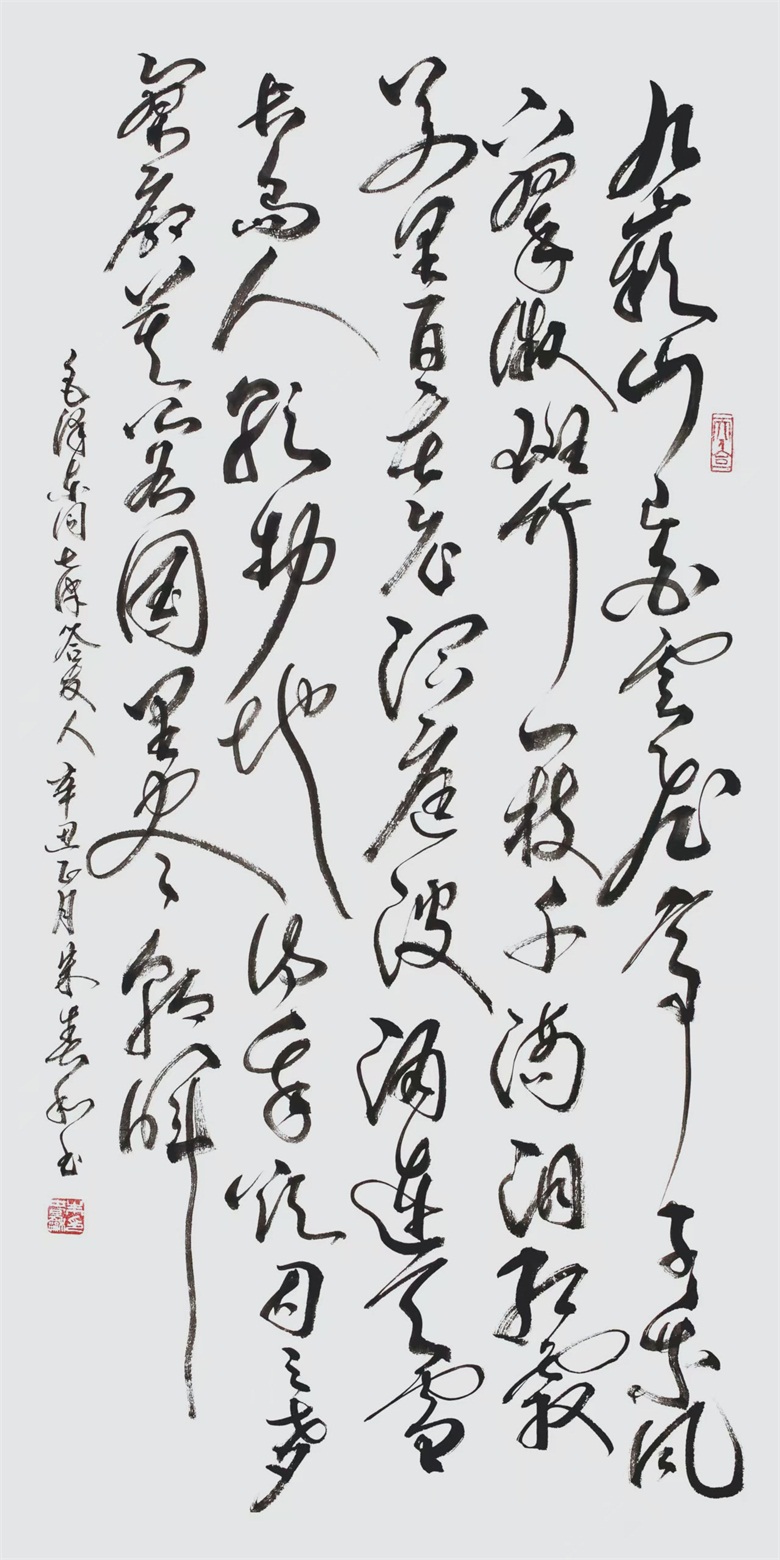 九嶷山上白雲飛帝子乘风
下翠微斑竹一枝千滴泪红霞
万朵百重衣洞庭波涌連天雪
长島人歌動地诗我欲因之夢
寥廓芙蓉国里尽朝晖
毛泽东词七律答友人 辛丑正月朱春和书